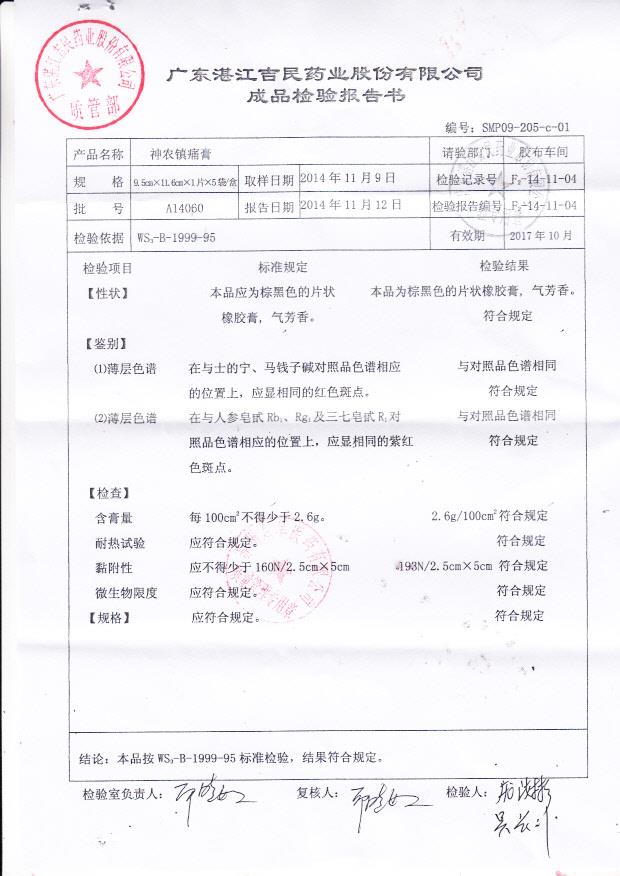 广东湛江吉民药业股份有限公司
质管部
广东湛江吉民药业股份有限公司
成品检验报告书
编号：SMP09-205-c-01
产品名称 神农镇痛膏 请验部门 胶布车间
规 格 9.5cm×11.6cm×1片×5袋/盒 取样日期 2014年11月9日 检验记录号 F₂-14-11-04
批 号 A14060 报告日期 2014年11月12日 检验报告编号 F₂-14-11-04
检验依据 WS₃-B-1999-95 有效期 2017年10月
检验项目 标准规定 检验结果
【性状】 本品应为棕黑色的片状 本品为棕黑色的片状橡胶膏，气芳香。
橡胶膏，气芳香。 符合规定
【鉴别】
⑴薄层色谱 在与士的宁、马钱子碱对照品色谱相应 与对照品色谱相同
的位置上，应显相同的红色斑点。 符合规定
⑵薄层色谱 在与人参皂甙Rb₁、Rg₁及三七皂甙R₁对 与对照品色谱相同
照品色谱相应的位置上，应显相同的紫红 符合规定
色斑点。
【检查】
含膏量 每100cm²不得少于2.6g。 2.6g/100cm²符合规定
耐热试验 应符合规定。 符合规定
黏附性 应不得少于160N/2.5cm×5cm 193N/2.5cm×5cm 符合规定
微生物限度 应符合规定。 符合规定
【规格】 应符合规定。 符合规定
结论：本品按WS₃-B-1999-95标准检验，结果符合规定。
检验室负责人： 复核人： 检验人：